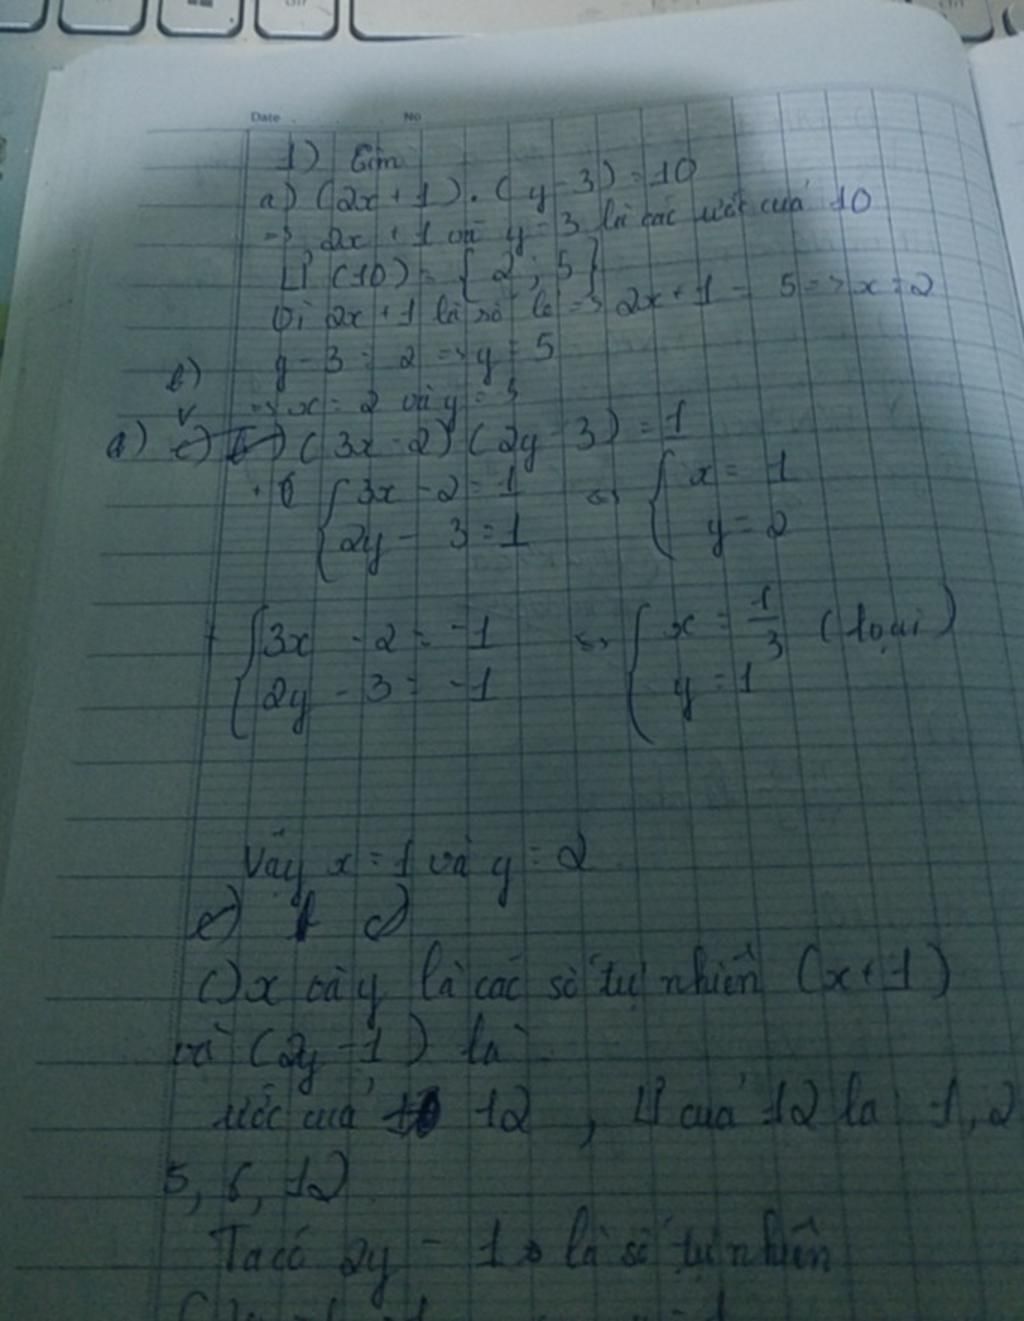 Date No
1) Tìm
a) (2x + 1) . (y - 3) = 10
=> 2x + 1 và y - 3 là các ước của 10
Ư (10) = { 2 ; 5 }
Vì 2x + 1 là số lẻ => 2x + 1 = 5 => x = 2
y - 3 = 2 => y = 5
b)
=> x = 2 và y = 5
d) c) (3x - 2) (2y - 3) = 1
{ 3x - 2 = 1 <=> { x = 1
2y - 3 = 1 y = 2
+ { 3x - 2 = -1 <=> { x = 1/3 (loại)
2y - 3 = -1 y = 1
Vậy x = 1 và y = 2
c)
C) x và y là các số tự nhiên (x + 1)
và (2y - 1) là
ước của 12 , Ư của 12 là 1, 2
5, 6, 12
Ta có 2y - 1 là số tự nhiên